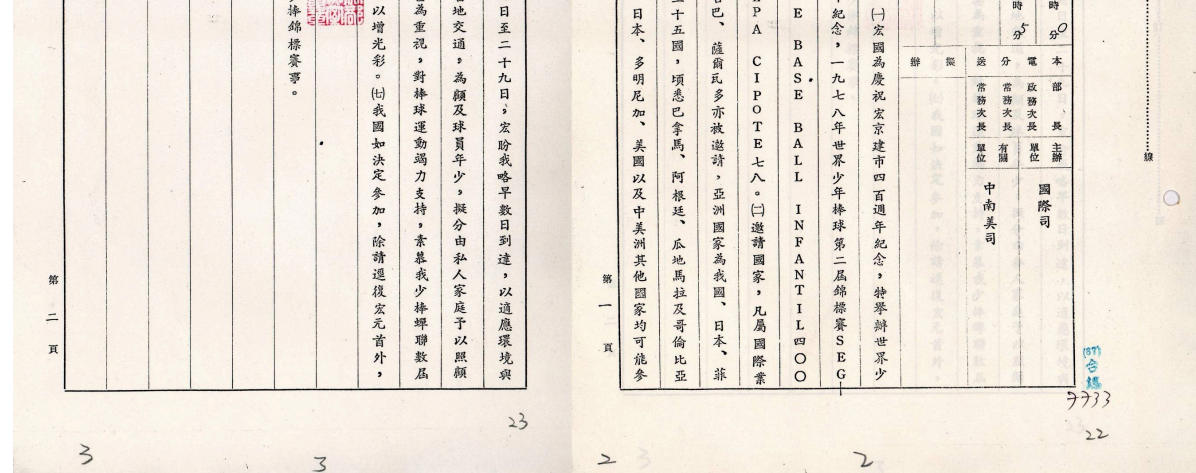 線
時
0分
時
5分
本電分送
部長
政務次長
常務次長
常務次長
主辦單位
國際司
有關單位
中南美司
擬辦
㈠宏國為慶祝宏京建市四百週年紀念,特舉辦世界少
年紀念,一九七八年世界少年棒球第二屆錦標賽SEG
E BASE BALL INFANTIL四〇〇
PA CIPOTE七八。㈡邀請國家,凡屬國際業
巴、薩爾瓦多亦被邀請,亞洲國家為我國、日本、菲
二十五國,頃悉巴拿馬、阿根廷、瓜地馬拉及哥倫比亞
日本、多明尼加、美國以及中美洲其他國家均可能參
第一頁
(87)
7733
22
2
2
日至二十九日,宏盼我略早數日到達,以適應環境與
地交通,為顧及球員年少,擬分由私人家庭予以照顧
為重視,對棒球運動竭力支持,素慕我少棒蟬聯數屆
以增光彩。㈦我國如決定參加,除請逕復宏元首外,
棒錦標賽事。
第二頁
23
3
3